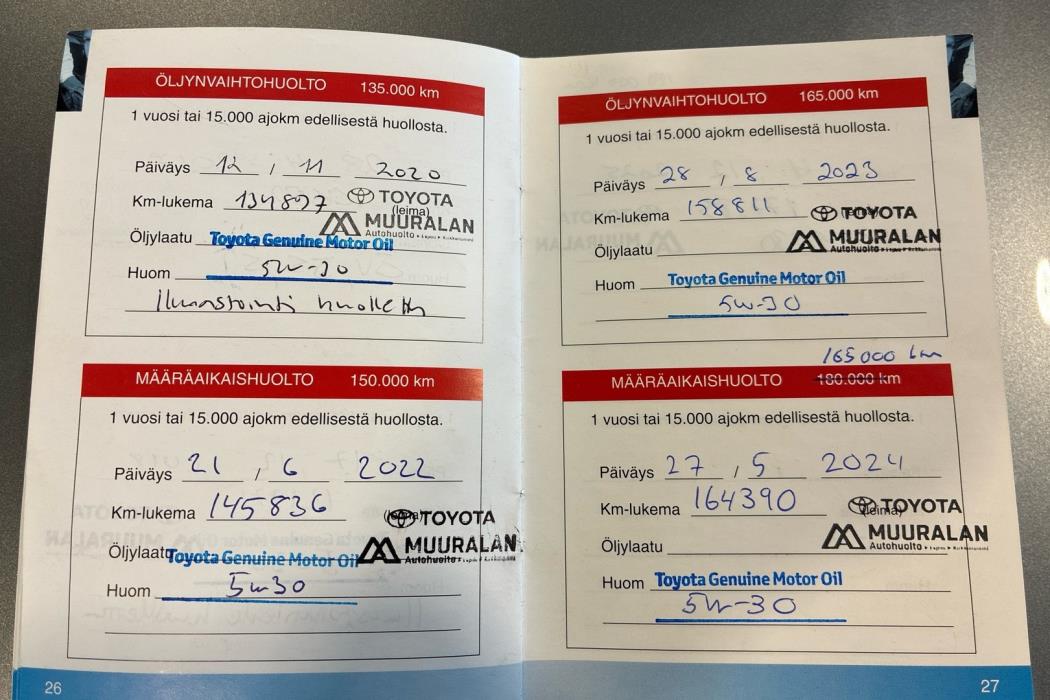 ÖLJYNVAIHTOHUOLTO 135.000 km
1 vuosi tai 15.000 ajokm edellisestä huollosta.
Päiväys 12 / 11 2020
Km-lukema 134897
TOYOTA
(leima)
MUURALAN
Autohuolto
Öljylaatu Toyota Genuine Motor Oil
Huom 5W-30
Ilmastointi huollettu
MÄÄRÄAIKAISHUOLTO 150.000 km
1 vuosi tai 15.000 ajokm edellisestä huollosta.
Päiväys 21 / 6 2022
Km-lukema 145836
TOYOTA
MUURALAN
Autohuolto
Öljylaatu Toyota Genuine Motor Oil
Huom 5W30
26
ÖLJYNVAIHTOHUOLTO 165.000 km
1 vuosi tai 15.000 ajokm edellisestä huollosta.
Päiväys 28 / 8 2023
Km-lukema 158811
(leima)
TOYOTA
MUURALAN
Autohuolto
Öljylaatu
Huom Toyota Genuine Motor Oil
5W-30
165000 km
MÄÄRÄAIKAISHUOLTO 180.000 km
1 vuosi tai 15.000 ajokm edellisestä huollosta.
Päiväys 27 / 5 2024
Km-lukema 164390
TOYOTA
(leima)
MUURALAN
Autohuolto
Öljylaatu
Huom Toyota Genuine Motor Oil
5W-30
27